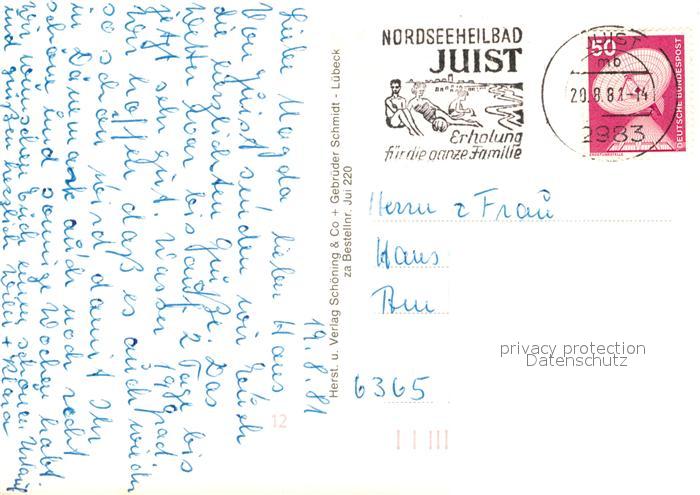 19.8.81
Liebe Magda, lieber Hans
Von Juist senden wir Euch
die herzlichsten Grüße. Das
Wetter war bis auf 2 Tage bis
jetzt sehr gut. Wasser grad
Wir hoffen, daß es auch wieder
so schön wird damit Ihr
in Dänemark auch noch recht
schöne und sonnige Wochen habt.
Wir wünschen Euch einen schönen Urlaub
und grüßen herzlich Willi + Klara
12
Herst. u. Verlag Schöning & Co + Gebrüder Schmidt - Lübeck
za Bestellnr. Jui 220
NORDSEEHEILBAD
JUIST
Erholung
für die ganze Familie
JUIST
mb
20.8.81-14
2983
50
DEUTSCHE BUNDESPOST
ERDFUNKSTELLE
Herrn u Frau
Hans
Am
6365
privacy protection
Datenschutz